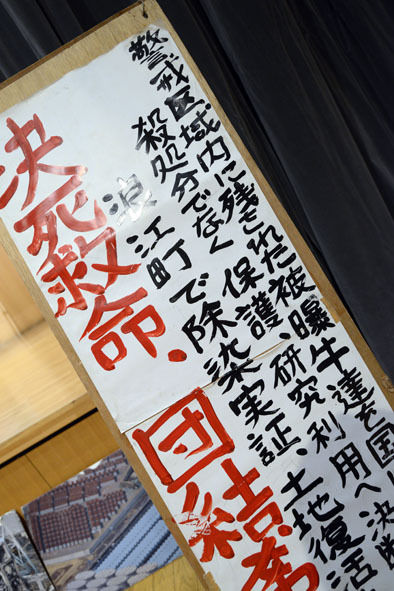 警戒区域内に残された被曝牛達を国
殺処分でなく保護、研究利用へ決断
浪江町で除染実証、土地復活
決死救命、団結奮